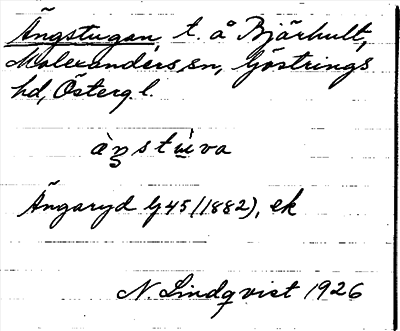 Ängstugan, t. å Bjärhult,
Malexanders sn, Göstrings
hd, Östergl.
Ängaryd lf 45 (1882), ek
N. Lindqvist 1926